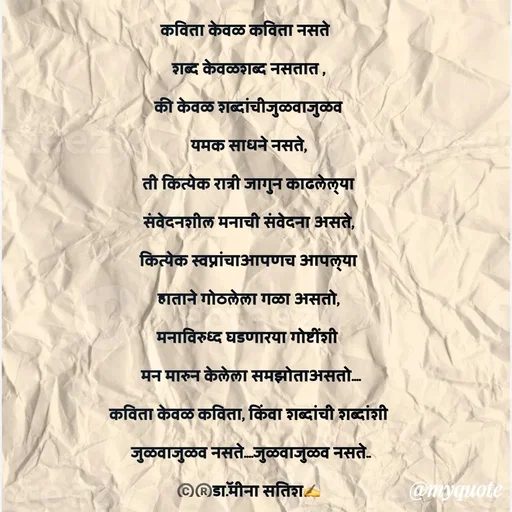 कविता केवळ कविता नसते
शब्द केवळशब्द नसतात ,
की केवळ शब्दांचीजुळवाजुळव
यमक साधने नसते,
ती कित्येक रात्री जागुन काढलेल्या
संवेदनशील मनाची संवेदना असते,
कित्येक स्वप्नांचाआपणच आपल्या
हाताने गोठलेला गळा असतो,
मनाविरुध्द घडणारया गोष्टींशी
मन मारुन केलेला समझोताअसतो....
कविता केवळ कविता, किंवा शब्दांची शब्दांशी
जुळवाजुळव नसते....जुळवाजुळव नसते..
©®डा.ॅमीना सतिश✍️
@myquote